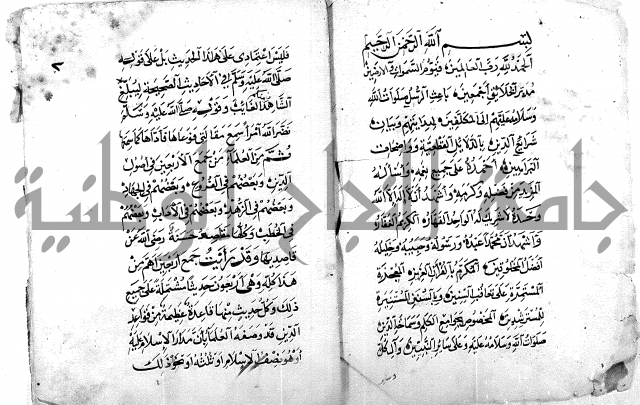 بسم الله الرحمن الرحيم
الحمد لله رب العالمين قيوم السموات والارضين
مدبر الخلائق اجمعين باعث الرسل صلوات الله
وسلامه عليهم الى المكلفين لهدايتهم وبيان
شرائع الدين بالدلائل القطعية وواضحات
البراهين احمده على جميع نعمه واساله
المزيد من فضله وكرمه واشهد ان لا اله الا الله
وحده لا شريك له الواحد القهار الكريم الغفار
واشهد ان محمدا عبده ورسوله وحبيبه وخليله
افضل المخلوقين المكرم بالقرآن العزيز المعجزة
المستمرة على تعاقب السنين وبالسنن المستنيرة
للمسترشدين المخصوص بجوامع الكلم وسماحة الدين
صلوات الله وسلامه عليه وعلى سائر النبيين وآل كل
وسائر
فليس اعتمادي على هذا الحديث بل على قوله
صلى الله عليه وسلم في الاحاديث الصحيحة ليبلغ
الشاهد الغائب وقوله صلى الله عليه وسلم
نضر الله امرأ سمع مقالتي فوعاها فاداها كما سمعها
ثم من العلماء من جمع الاربعين في اصول
الدين وبعضهم في الفروع وبعضهم في الجهاد
وبعضهم في الزهد وبعضهم في الآداب وبعضهم
في الخطب وكلها مقاصد حسنة رضي الله عن
قاصديها وقد رأيت جمع اربعين اهم من
هذا كله وهي اربعون حديثا مشتملة على جميع
ذلك وكل حديث منها قاعدة عظيمة من قواعد
الدين قد وصفه العلماء بأن مدار الاسلام عليه
او هو نصف الاسلام او ثلثه او نحو ذلك
جامعة النجاح الوطنية